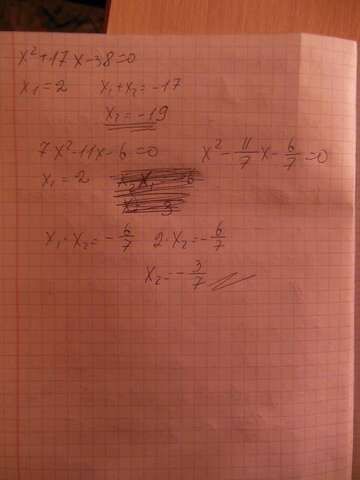 x²+17x-38=0
x₁=2 x₁+x₂=-17
x₂=-19
7x²-11x-6=0 x²-11/7x-6/7=0
x₁=2
x₁·x₂=-6/7 2·x₂=-6/7
x₂=-3/7